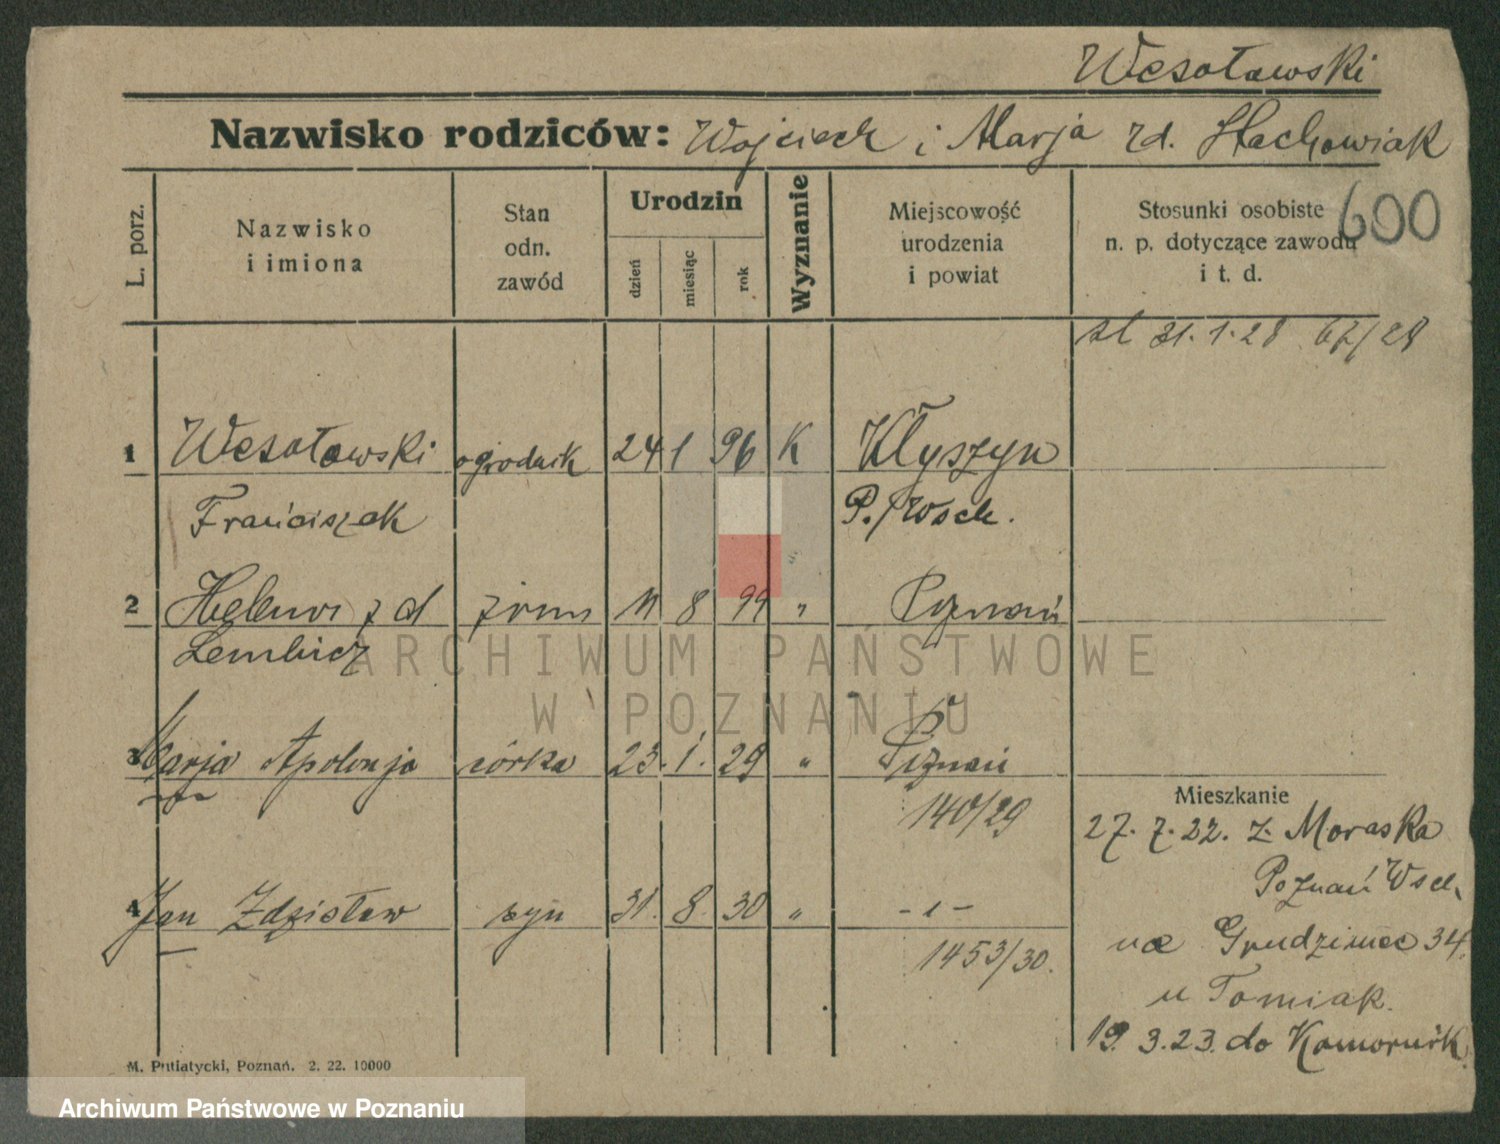 Wesołowski
Nazwisko rodziców: Wojciech i Marja zd. Stachowiak
600
L. porz.
Nazwisko i imiona
Stan odn. zawód
Urodzin
dzień
miesiąc
rok
Wyznanie
Miejscowość urodzenia i powiat
Stosunki osobiste n. p. dotyczące zawodu i t. d.
sl 31.1.28 67/28
1 Wesołowski ogrodnik 24 1 96 K Kłyszyn
Franciszek P./Wsch.
2 Helena z d żona 11 8 99 " Poznań
Lembicz
3 Marja Apolonja córka 23. 1. 29 " Poznań
140/29
4 Jan Zdzisław syn 31. 8. 30 " - " -
1453/30.
Mieszkanie
27. 7. 22. z Moraska
Poznań Wsch.
na Grudzieniec 34.
u Tomiak.
19. 3. 23. do Komornik
M. Putiatycki, Poznań. 2. 22. 10000
ARCHIWUM PAŃSTWOWE
W POZNANIU
Archiwum Państwowe w Poznaniu